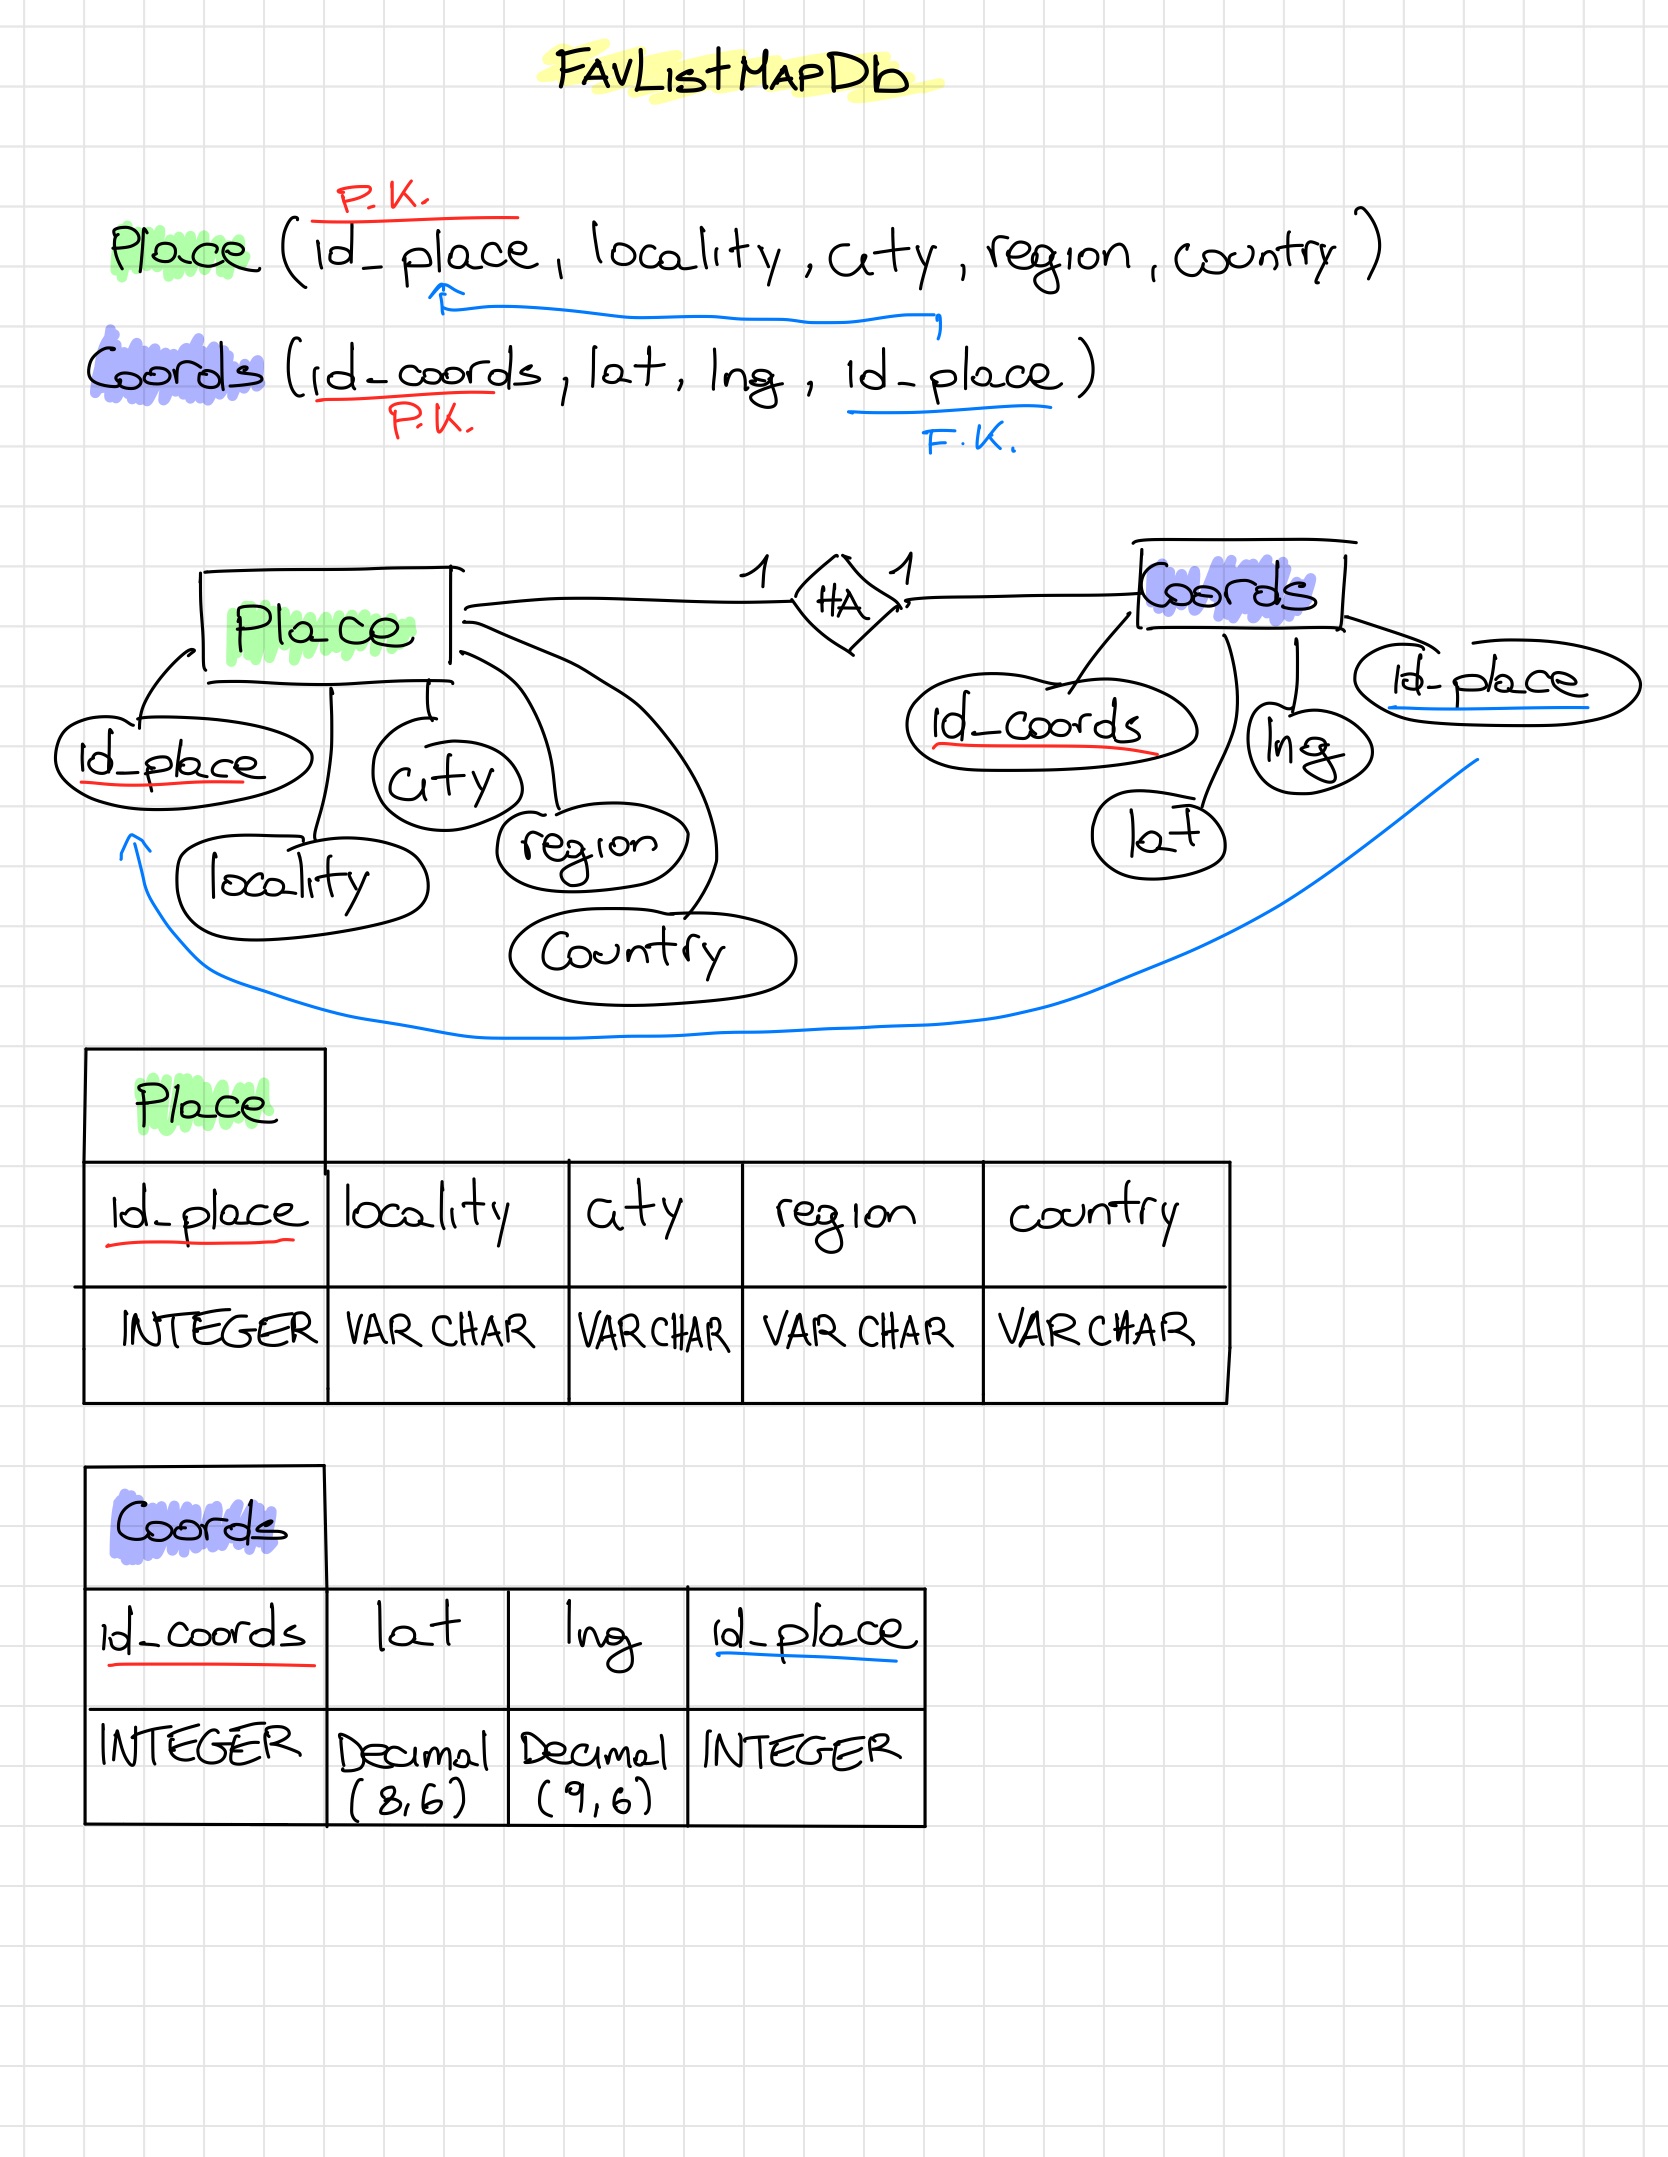 FavListMapDb
P.K.
Place (id_place, locality, city, region, country)
Coords (id_coords, lat, lng, id_place)
P.K. F.K.
Place 1 HA 1 Coords
id_place city id_coords lng id_place
locality region lat
Country
Place
id_place locality city region country
INTEGER VARCHAR VARCHAR VARCHAR VARCHAR
Coords
id_coords lat lng id_place
INTEGER Decimal Decimal INTEGER
(8,6) (9,6)